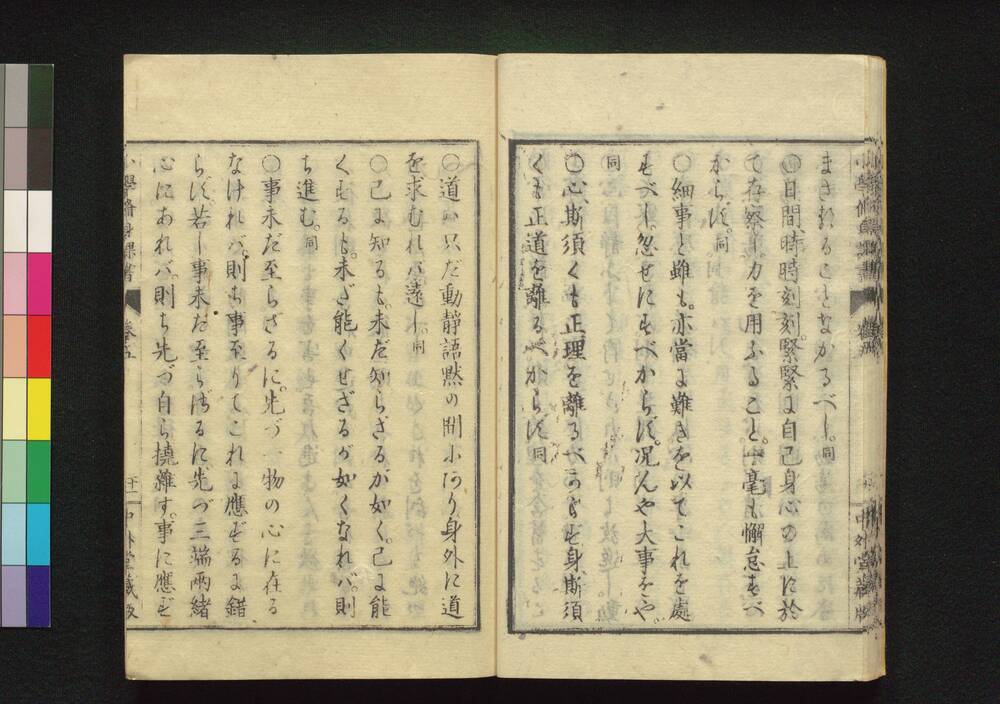 まさるることなかるべし。同
〇日間、時時刻刻。緊緊に自己身心の上に於
て存察シ力を用ふること。一毫も懈怠すべ
からず。同
〇細事と雖も。亦當に難きを以てこれを處
すべし。忽せにすべからず。况んや大事をや。
同
〇心、斯須くも正理を離るべからず身、斯須
くも正道を離るべからず同
小學脩身課書
中外堂藏版
〇道ハ只だ動靜語黙の間にあり身外に道
を求むれバ遠し。同
〇已に知るも、未だ知らざるが如く。已に能
くするも。未だ能くせざるが如くなれバ。則
ち進む。同
〇事未だ至らざるに。先づ一物の心に在る
なけれバ。則ち事至りてこれに應ずるに錯
らず若し事未だ至らざるに先づ三端兩緒
心にあれバ。則ち先づ自ら撓雜す。事に應ず
小學脩身課書
卷五
廿一
中外堂藏版